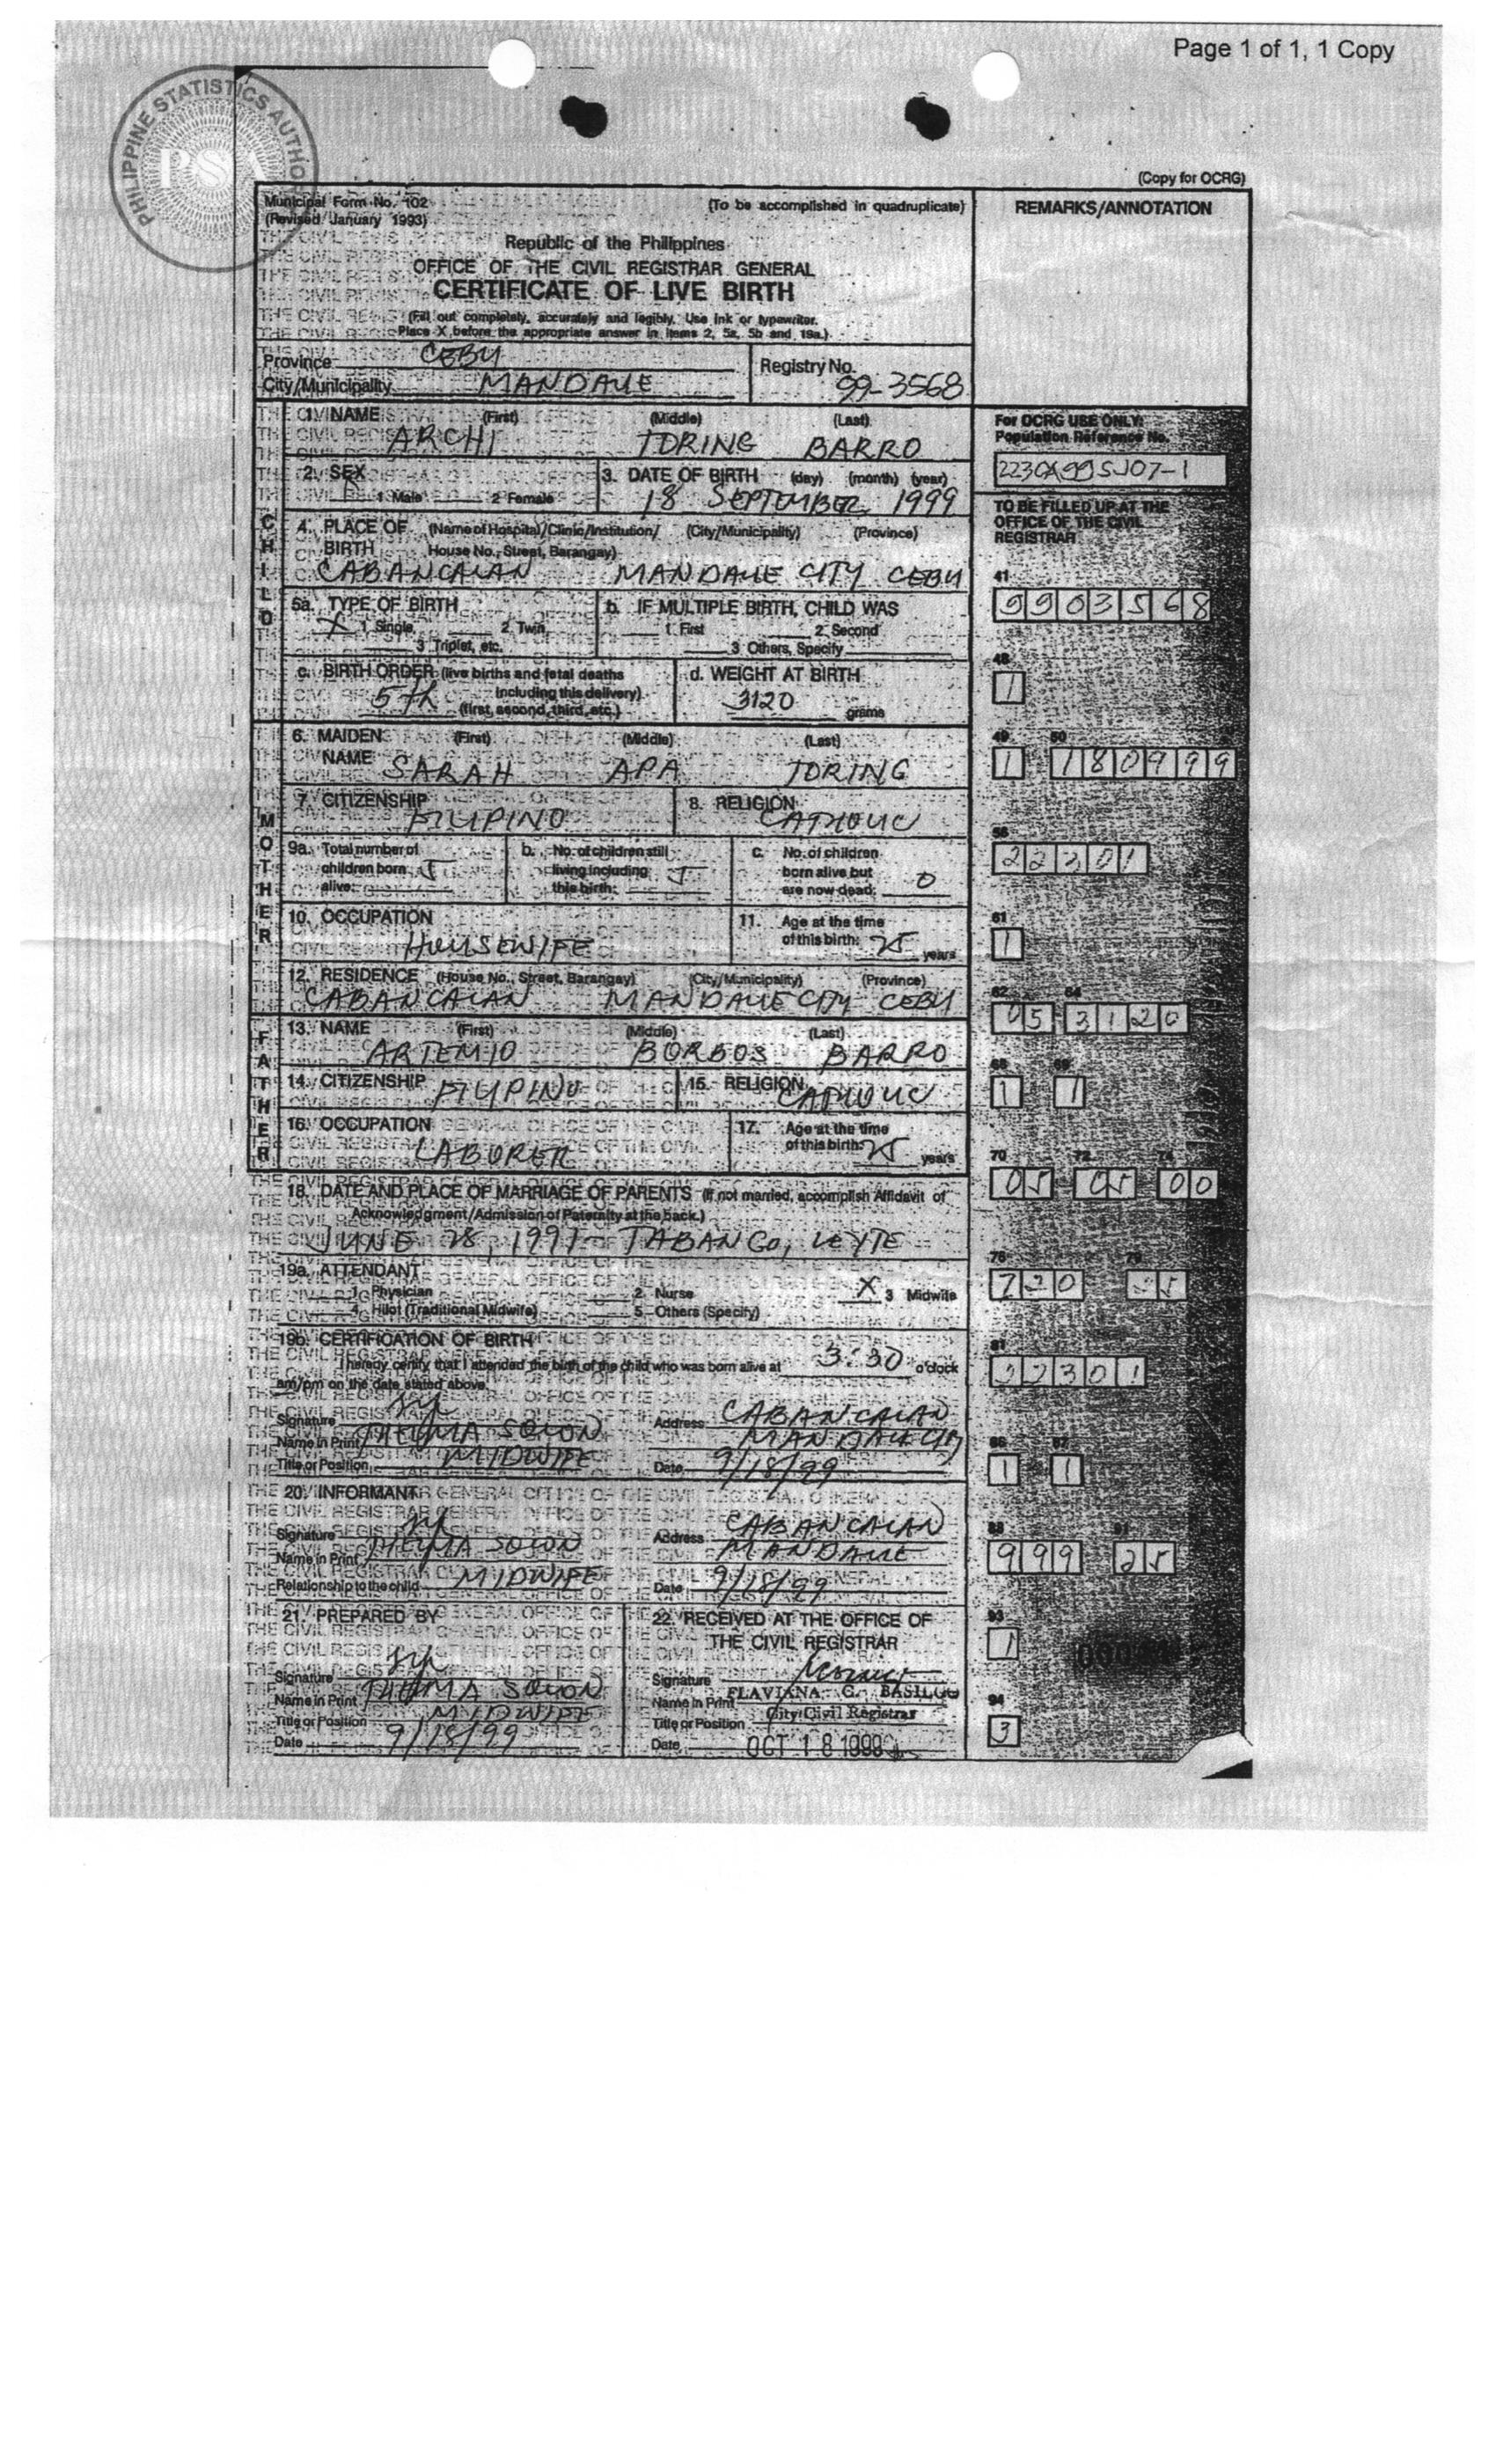 Page 1 of 1, 1 Copy
PHILIPPINE STATISTICS AUTHO
PSA
(Copy for OCRG)
Municipal Form No. 102
(Revised January 1993)
(To be accomplished in quadruplicate)
REMARKS/ANNOTATION
Republic of the Philippines
OFFICE OF THE CIVIL REGISTRAR GENERAL
CERTIFICATE OF LIVE BIRTH
(Fill out completely, accurately and legibly. Use ink or typewriter.
Place X before the appropriate answer in items 2, 5a, 5b and 19a.)
Province CEBU
City/Municipality MANDAUE
Registry No. 99-3568
For OCRG USE ONLY:
Population Reference No.
TO BE FILLED UP AT THE
OFFICE OF THE CIVIL
REGISTRAR
CHILD
1. NAME (First) (Middle) (Last)
ARCHI TORING BARRO
2. SEX
1 Male 2 Female
3. DATE OF BIRTH (day) (month) (year)
18 SEPTEMBER 1999
4. PLACE OF BIRTH (Name of Hospital/Clinic/Institution/ (City/Municipality) (Province)
House No., Street, Barangay)
CABANCALAN MANDAUE CITY CEBU
41
9903568
5a. TYPE OF BIRTH
X 1 Single 2 Twin
3 Triplet, etc.
b. IF MULTIPLE BIRTH, CHILD WAS
1 First 2 Second
3 Others, Specify
c. BIRTH ORDER (live births and fetal deaths
including this delivery)
5th (first, second, third, etc.)
d. WEIGHT AT BIRTH
3120 grams
48
1
MOTHER
6. MAIDEN NAME (First) (Middle) (Last)
SARAH APA TORING
49 50
1 180999
7. CITIZENSHIP
FILIPINO
8. RELIGION
CATHOLIC
56
22301
9a. Total number of
children born
alive: 5
b. No. of children still
living including
this birth: 5
c. No. of children
born alive but
are now dead: 0
10. OCCUPATION
HOUSEWIFE
11. Age at the time
of this birth: 25 years
61
1
12. RESIDENCE (House No., Street, Barangay) (City/Municipality) (Province)
CABANCALAN MANDAUE CITY CEBU
62 64
05 3120
FATHER
13. NAME (First) (Middle) (Last)
ARTEMIO BORBOS BARRO
14. CITIZENSHIP FILIPINO
15. RELIGION CATHOLIC
68 69
1 1
16. OCCUPATION
LABORER
17. Age at the time
of this birth: 25 years
70 72 74
05 05 00
18. DATE AND PLACE OF MARRIAGE OF PARENTS (If not married, accomplish Affidavit of
Acknowledgment/Admission of Paternity at the back.)
JUNE 28, 1991 - TABANGO, LEYTE
76 79
720 25
19a. ATTENDANT
1 Physician 2 Nurse X 3 Midwife
4 Hilot (Traditional Midwife) 5 Others (Specify)
19b. CERTIFICATION OF BIRTH
I hereby certify that I attended the birth of the child who was born alive at 3:30 o'clock
am/pm on the date stated above.
81
22301
Signature
Name in Print THELMA SOLON
Title or Position MIDWIFE
Address CABANCALAN
MANDAUE CITY
Date 9/18/99
86 87
1 1
20. INFORMANT
Signature
Name in Print THELMA SOLON
Relationship to the child MIDWIFE
Address CABANCALAN
MANDAUE
Date 9/18/99
88 91
999 25
21. PREPARED BY
Signature
Name in Print THELMA SOLON
Title or Position MIDWIFE
Date 9/18/99
22. RECEIVED AT THE OFFICE OF
THE CIVIL REGISTRAR
Signature
Name in Print FLAVIANA C.
Title or Position City Civil Registrar
Date OCT 18 1999
93
1
94
3